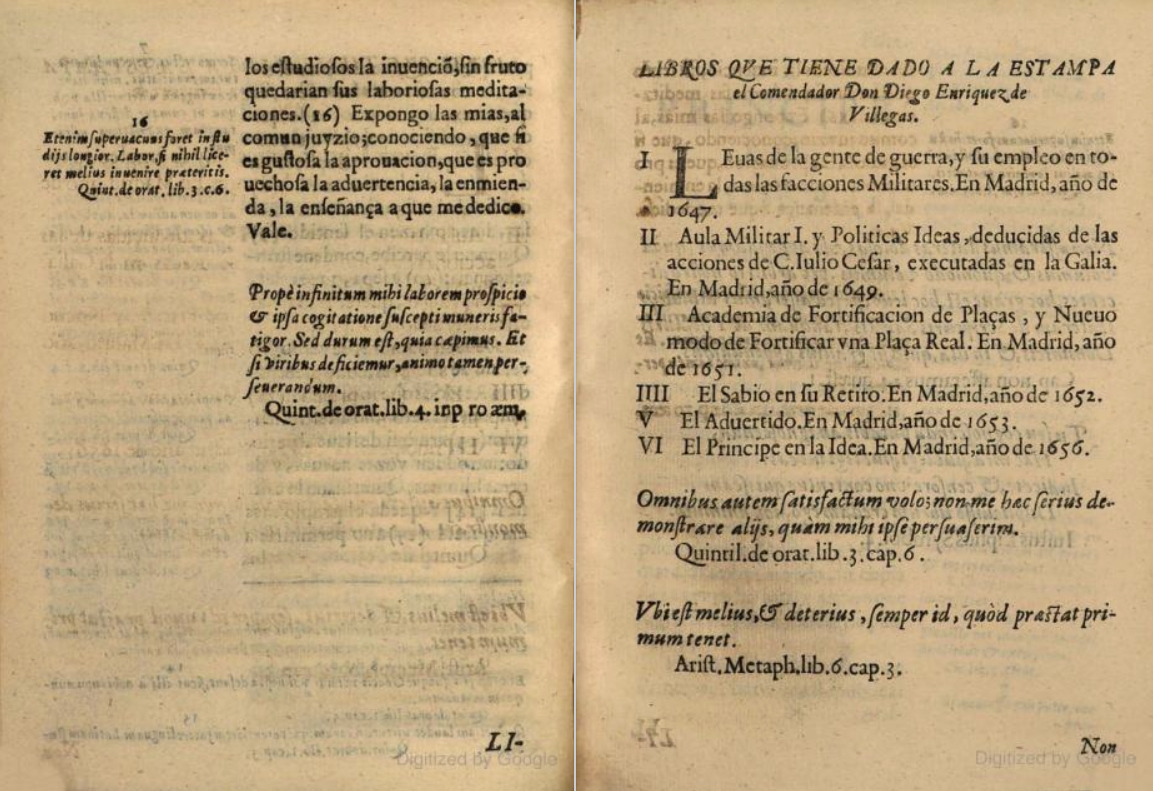 los eſtudioſos la inuenciõ, ſin fruto
quedarian ſus laborioſas medita-
ciones.(16) Expongo las mias, al
comun juyzio; conociendo, que ſi
es guſtoſa la aprouacion, que es pro
uechoſa la aduertencia, la enmien-
da, la enſeñança a que me dedico.
Vale.
16
Etenim ſuperuacuus foret in ſtu
dijs longior. Labor, ſi nihil lice-
ret melius inuenire præteritis.
Quint. de orat. lib. 3. c. 6.
Propè infinitum mihi laborem proſpicio
& ipſa cogitatione ſuſcepti muneris fa-
tigor. Sed durum eſt, quia cæpimus. Et
ſi viribus deficiemur, animo tamen per-
ſeuerandum.
Quint. de orat. lib. 4. inp ro æm,
LI-
Digitized by Google
LIBROS QVE TIENE DADO A LA ESTAMPA
el Comendador Don Diego Enriquez de
Villegas.
I LEuas de la gente de guerra, y ſu empleo en to-
das las facciones Militares. En Madrid, año de
1647.
II Aula Militar I. y Politicas Ideas, deducidas de las
acciones de C. Iulio Ceſar, executadas en la Galia.
En Madrid, año de 1649.
III Academia de Fortificacion de Plaças, y Nueuo
modo de Fortificar vna Plaça Real. En Madrid, año
de 1651.
IIII El Sabio en ſu Retiro. En Madrid, año de 1652.
V El Aduertido. En Madrid, año de 1653.
VI El Principe en la Idea. En Madrid, año de 1656.
Omnibus autem ſatisfactum volo; non me hæc ſerius de-
monſtrare alijs, quàm mihi ipſe perſuaſerim.
Quintil. de orat. lib. 3. cap. 6.
Vbi eſt melius, & deterius, ſemper id, quòd præſtat pri-
mum tenet.
Ariſt. Metaph. lib. 6. cap. 3.
Non
Digitized by Google